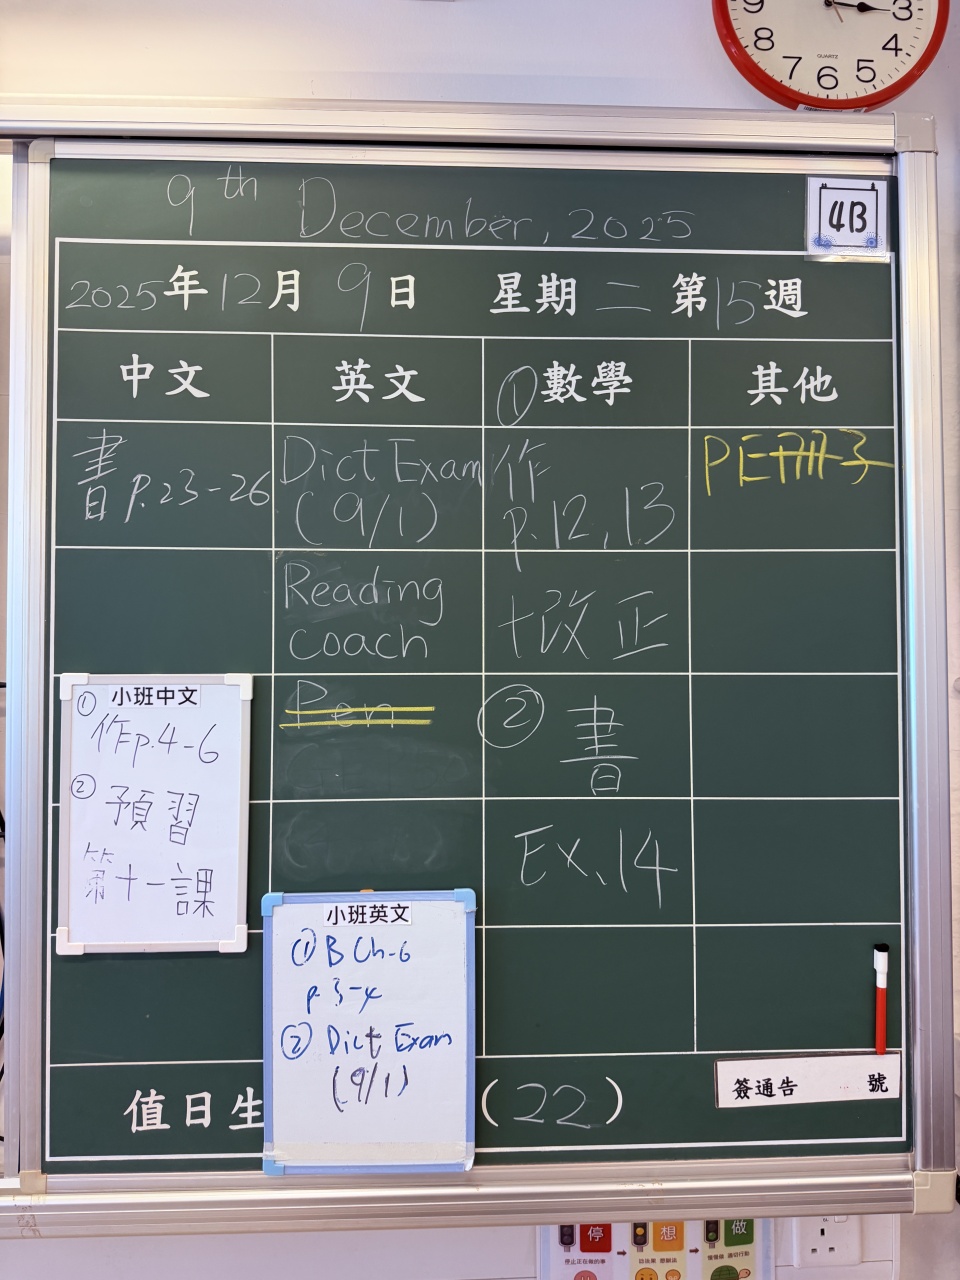 9
3
8
4
QUARTZ
7
6
5
9th December, 2025
4B
2025年12月9日 星期二 第15週
中文
英文
①數學
其他
書 p.23-26
Dict Exam
(9/1)
作
p.12,13
PE冊子
Reading
coach
+改正
Pen
② 書
Ex.14
小班中文
① 作p.4-6
② 預習
第十一課
小班英文
① B Ch-6
p.3-4
② Dict Exam
(9/1)
值日生
(22)
簽通告 號
停
想
做